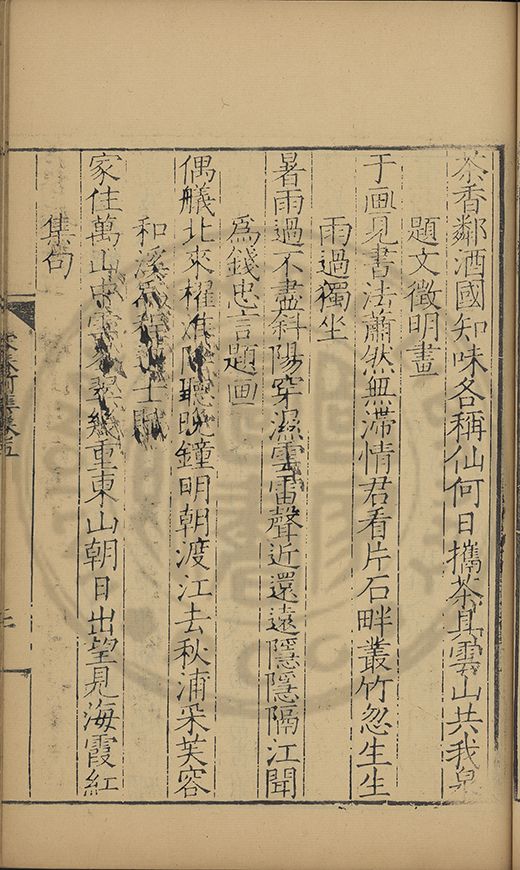 茶香鄰酒國知味各稱仙何日攜茶具雲山共我泉
題文徵明畫
于画見書法蕭然無滯情君看片石畔叢竹忽生生
雨過獨坐
暑雨過不盡斜陽穿濕雲雷聲近還遠隱隱隔江聞
為錢忠言題画
偶艤北來櫂聽晚鐘明朝渡江去秋浦采芙容
和溪為程士賦
家住萬山中雲翠幾重東山朝日出望見海霞紅
集句